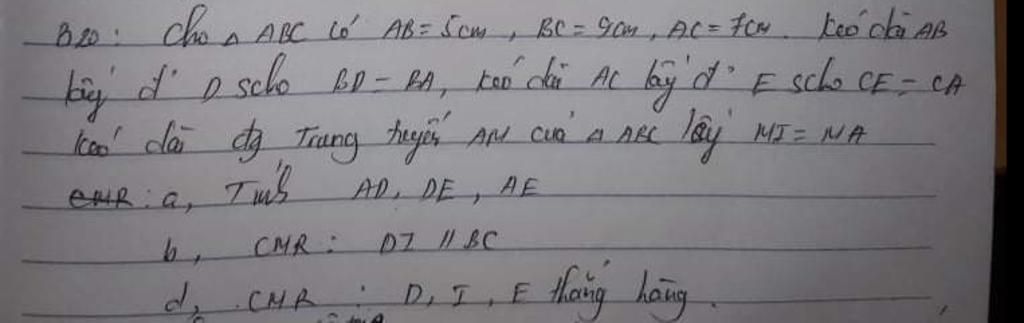 B20: Cho △ ABC có AB = 5cm, BC = 9cm, AC = 7cm. Kéo dài AB
lấy đ' D scho BD = BA, kéo dài AC lấy đ' E scho CE = CA
kéo dài đg Trung tuyến AM của △ ABC lấy MI = MA
CMR: a, Tính AD, DE, AE
b, CMR: DI // BC
d, CMR: D, I, E thẳng hàng.